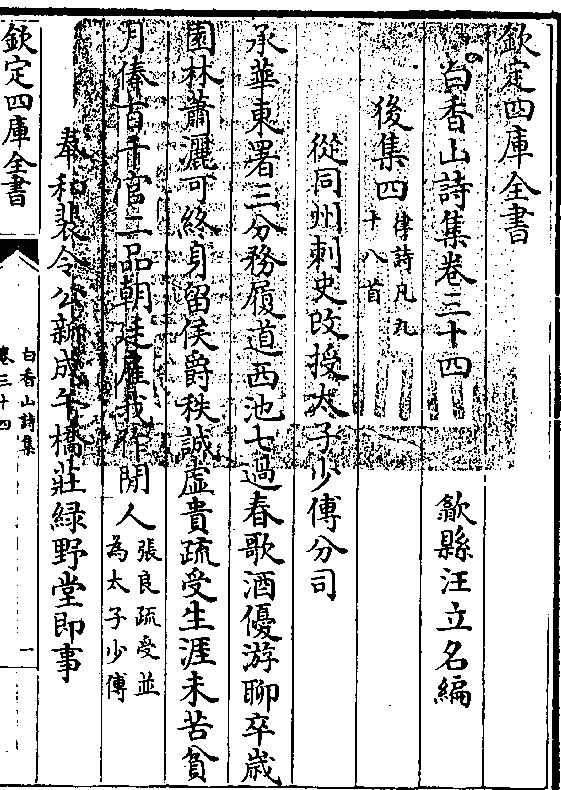 欽定四庫全書
白香山詩集卷三十四 歙縣汪立名編
後集四 律詩凡九十八首
從同州刺史改授太子少傅分司
承華東署三分務履道西池七過春歌酒優游聊卒歲
園林蕭灑可終身留侯爵秩誠虛貴疏受生涯未苦貧
月俸百千官二品朝廷雇我作閒人 張良疏受並為太子少傅
奉和裴令公新成午橋莊緑野堂即事
欽定四庫全書
白香山詩集
卷三十四
一